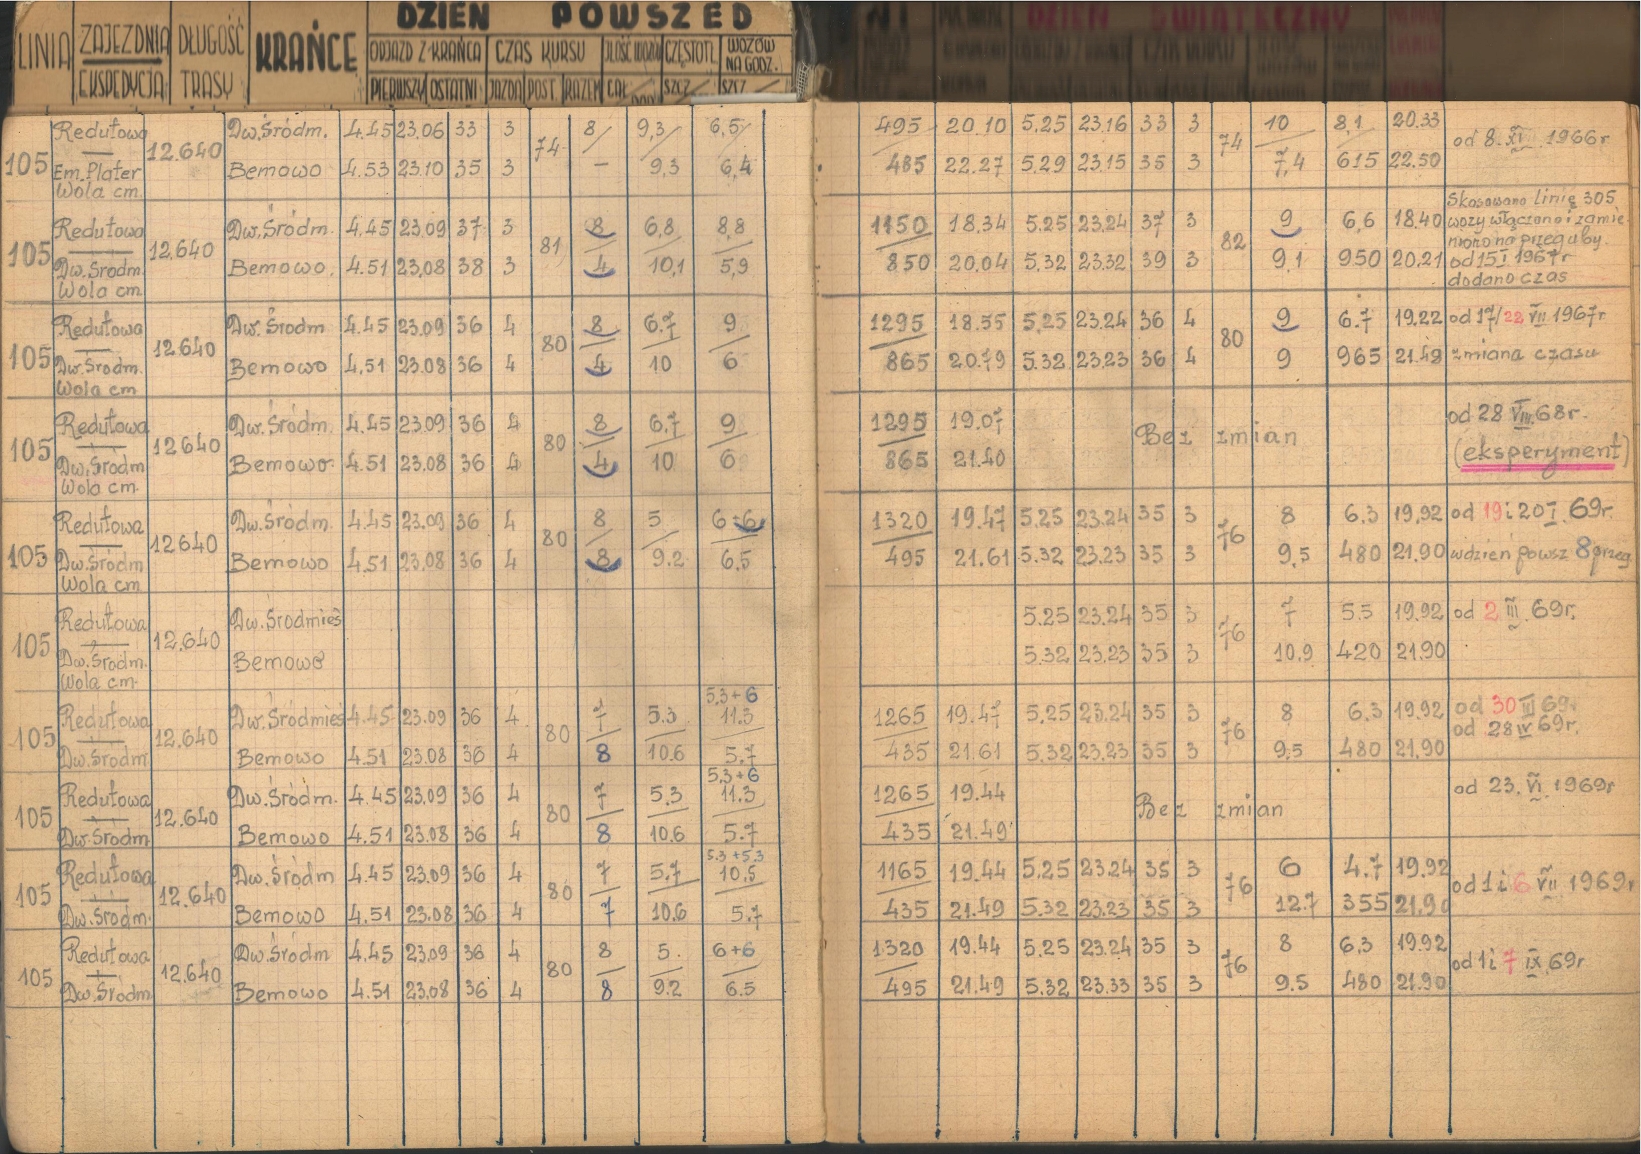 DZIEŃ POWSZED
LINIA ZAJEZDNIA DŁUGOŚĆ KRAŃCE ODJAZD Z KRAŃCA CZAS KURSU ILOŚĆ WOZÓW CZĘSTOTL. WOZÓW NA GODZ.
EKSPEDYCJA TRASY PIERWSZY OSTATNI JAZDA POST. RAZEM CAŁ SZCZ SZCZ
DZIEŃ ŚWIĄTECZNY
Redutowa Dw.Śródm. 4.45 23.06 33 3 8/ 9,3/ 6,5/ 495 20.10 5.25 23.16 33 3 10 8,1 20.33
105 12.640 74 74 od 8. 1966r
Em.Plater Bemowo 4.53 23.10 35 3 – 9,3 6,4 485 22.27 5.29 23.15 35 3 7,4 615 22.50
Wola cm.
Redutowa Dw.Śródm. 4.45 23.09 37 3 8 6,8 8,8 1150 18.34 5.25 23.24 37 3 9 6,6 18.40 Skasowano linię 305
105 12.640 81 82 wozy włączono i zamie-
niono na przeguby.
Dw.Śródm. Bemowo. 4.51 23.08 38 3 4 10,1 5,9 850 20.04 5.32 23.32 39 3 9,1 950 20.21 od 15 I 1967r
Wola cm dodano czas
Redutowa Dw. Śródm 4.45 23.09 36 4 8 6.7 9 1295 18.55 5.25 23.24 36 4 9 6.7 19.22 od 17/22 VII 1967r
105 12.640 80 80
Dw.Śródm. Bemowo 4.51 23.08 36 4 4 10 6 865 20.79 5.32 23.23 36 4 9 965 21.49 zmiana czasu
Wola cm
Redutowa Dw.Śródm. 4.45 23.09 36 4 8 6.7 9 1295 19.07 od 28 VIII 68r.
105 12.640 80 Bez zmian
Dw.Śródm Bemowo. 4.51 23.08 36 4 4 10 6 865 21.40 (eksperyment)
Wola cm.
Redutowa Dw.Śródm. 4.45 23.09 36 4 8 5 6+6 1320 19.47 5.25 23.24 35 3 8 6.3 19.92 od 19 i 20 I. 69r.
105 12.640 80 76
Dw.Śródm Bemowo 4.51 23.08 36 4 8 9.2 6.5 495 21.61 5.32 23.23 35 3 9,5 480 21.90 w dzień powsz 8 przeg
Wola cm
Redutowa Dw.Środmieś 5.25 23.24 35 3 7 5.5 19.92 od 2 III 69r.
105 12.640 76
Dw.Śródm. Bemowo 5.32 23.23 35 3 10.9 420 21.90
Wola cm.
5.3+6
Redutowa Dw.Śródmieś 4.45 23.09 36 4 7 5.3 11.3 1265 19.47 5.25 23.24 35 3 8 6.3 19.92 od 30 III 69r
105 12.640 80 76 od 28 IV 69r.
Dw.Śródm Bemowo 4.51 23.08 36 4 8 10.6 5.7 435 21.61 5.32 23.23 35 3 9.5 480 21.90
5.3+6
Redutowa Dw.Śródm. 4.45 23.09 36 4 7 5.3 11.3 1265 19.44 od 23. VI 1969r
105 12.640 80 Bez zmian
Dw.Śródm Bemowo 4.51 23.08 36 4 8 10.6 5.7 435 21.49
5.3+5.3
Redutowa Dw.Śródm 4.45 23.09 36 4 7 5.7 10.5 1165 19.44 5.25 23.24 35 3 6 4.7 19.92
105 12.640 80 76 od 1 i 6 VII 1969r
Dw.Śródm. Bemowo 4.51 23.08 36 4 7 10.6 5.7 435 21.49 5.32 23.23 35 3 12.7 355 21.90
Redutowa Dw.Śródm 4.45 23.09 36 4 8 5. 6+6 1320 19.44 5.25 23.24 35 3 8 6.3 19.92
105 12.640 80 76 od 1 i 7 IX 69r
Dw.Śródm Bemowo 4.51 23.08 36 4 8 9.2 6.5 495 21.49 5.32 23.33 35 3 9.5 480 21.90